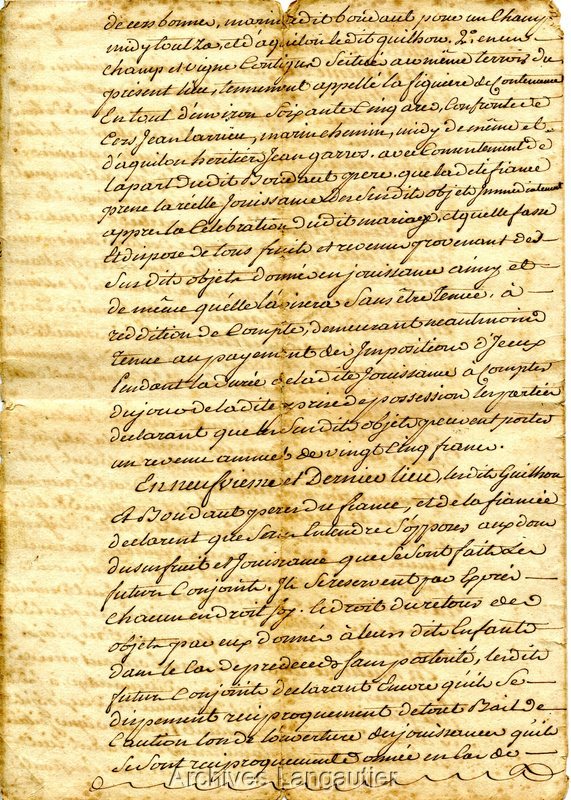 de cers bonne, marin ledit boudaut pour un Champ
midy Loulza, et d'aquilon ledit Guilhou, 2°. en un
champ et vigne Contigus Scitué au même terroir du
present lieu, tenement appellé la figuiere de Contenance
En tout d'environ Soixante Cinq are, Confronte de
Cers Jean Larrieu, marin chemin, midy de même et
d'aquilon héritiers Jean garros. avec Consentement de
la part dudit Boudaut pere, que ladite fiancé
prene la réelle Jouissance Des Susdits objets Immediatement
apprès la Célébration dudit mariage, et quelle fasse
Et dispose de tous fruits et revenus provenant des
Susdits objets donnés en jouissance ainsy et
de même qu'elle lavisera Sans être tenue, à
reddition de Compte, demeurant neaulmoins
tenue au payement des Impositions d'Jceux
Pendant la durée de ladite Jouissance à Compter
du jour de ladite prise de possession les parties
declarant que les Susdits objets peuvent porter
un revenu annuel de vingt Cinq francs.
En neufvieme et Dernier lieu, lesdits Guilhou
Et Boudaut peres du fiancé, et de la fiancée
declarent que Sans Entendre S'opposer aux dons
dusufruit et Jouissance que Se Sont faits Les
futurs Conjoints, Ils Se reservent par Exprès
chacun en droit soy. le droit du retour des
objets par eux donnés à leurs dits Enfants
dans le Cas de predeceds Sans posterité, lesdits
futurs Conjoints declarant Encore qu'ils Se
dispensent reciproquement de tout Bail de
Caution lors de louverture des jouissances qu'ils
Se Sont reciproquement données en Cas de
Archives Langautier